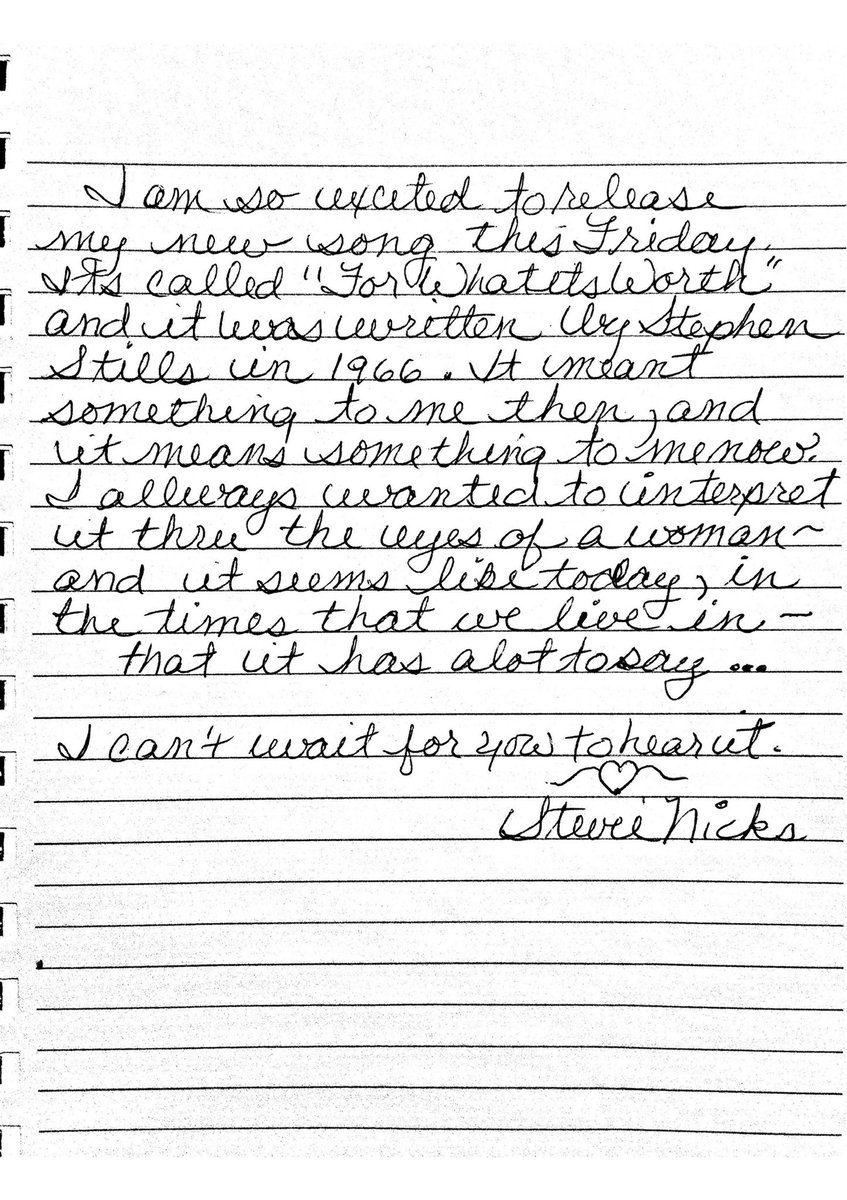 I am so excited to release
my new song this Friday.
It's called "For What its Worth"
and it was written by Stephen
Stills in 1966. It meant
something to me then, and
it means something to me now.
I allways wanted to interpret
it thru the eyes of a woman~
and it seems like today, in
the times that we live in~
that it has a lot to say...
I can't wait for you to hear it.
Stevie Nicks